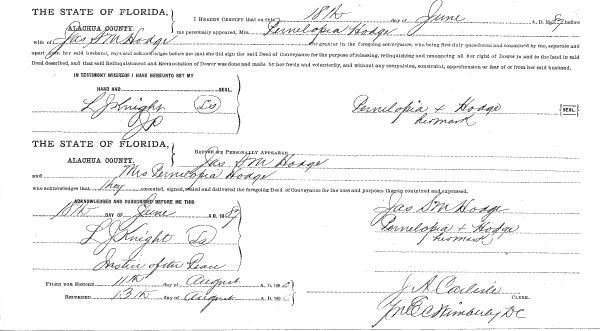 THE STATE OF FLORIDA, I HEREBY CERTIFY that on this 18th day of June A. D. 1889 before
ALACHUA COUNTY. me personally appeared, Mrs. Pernelopia Hodge
wife of Jas S M Hodge the grantor in the foregoing conveyance, who being first duly questioned and examined by me, separate and
apart from her said husband, says and acknowledges before me that she did sign the said Deed of Conveyance for the purpose of releasing, relinquishing and renouncing all her right of Dower in and to the land in
said Deed described, and that said Relinquishment and Renunciation of Dower was done and made by her freely and voluntarily, and without any compulsion, constraint, apprehension or fear of or from her said husband.
IN TESTIMONY WHEREOF I HAVE HEREUNTO SET MY
HAND AND SEAL.
L J Knight Ls
JP
Pernelopia + Hodge SEAL
her mark
THE STATE OF FLORIDA,
ALACHUA COUNTY.
BEFORE ME PERSONALLY APPEARED Jas S M Hodge
and Mrs Pernelopia Hodge
who acknowledges that they executed, signed, sealed and delivered the foregoing Deed of Conveyance for the uses and purposes therein contained and expressed.
ACKNOWLEDGED AND SUBSCRIBED BEFORE ME THIS
18th DAY OF June A. D. 1889
L J Knight Ls
Justice of the Peace
Jas S M Hodge
Pernelopia + Hodge
her mark
FILED FOR RECORD 11th day of August A. D. 18
RECORDED 13th day of August A. D. 18
J A Carlisle
CLERK.
DC